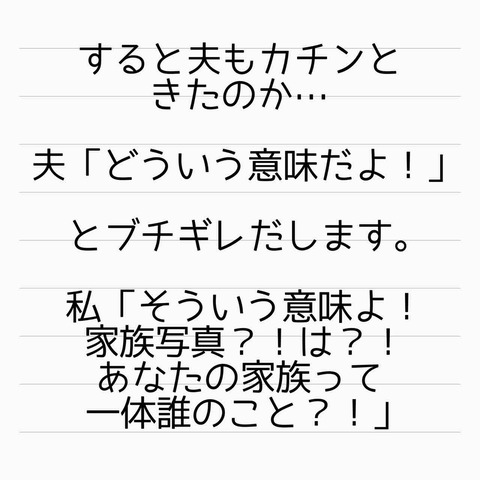 すると夫もカチンと
きたのか…
夫「どういう意味だよ！」
とブチギレだします。
私「そういう意味よ！
家族写真？！は？！
あなたの家族って
一体誰のこと？！」